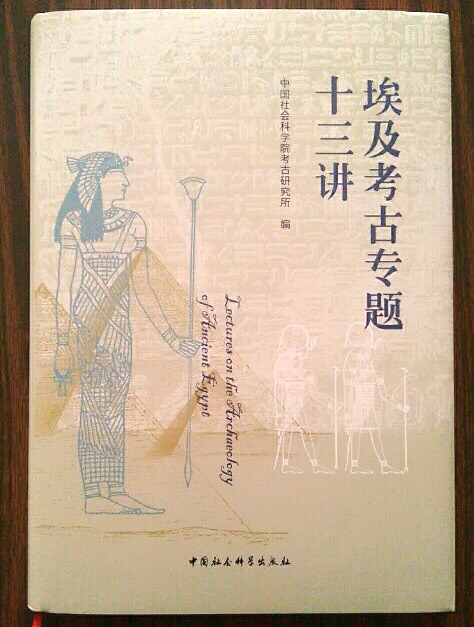 埃及考古专题
十三讲
中国社会科学院考古研究所 编
Lectures on the Archaeology
of Ancient Egypt
中国社会科学出版社